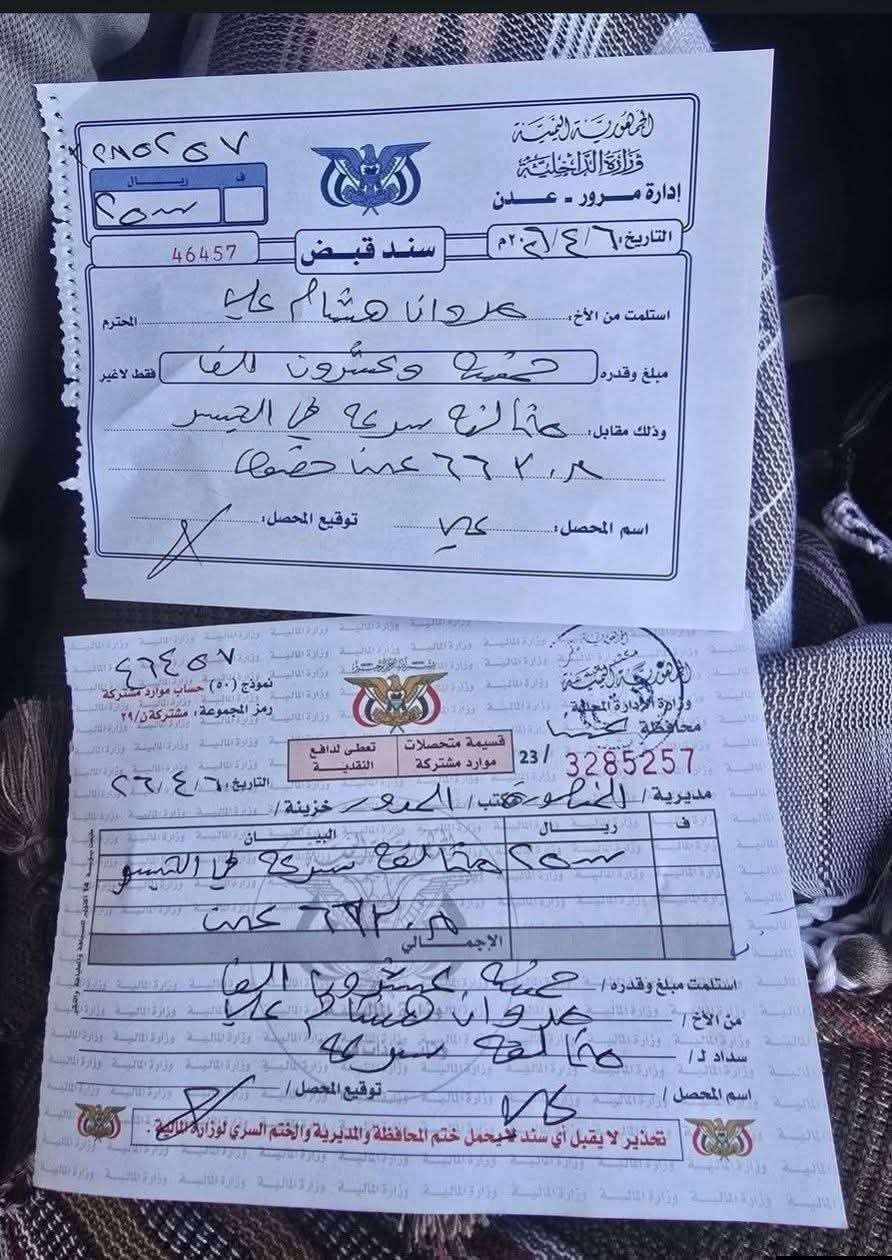 الجمهورية اليمنية
وزارة الداخلية
إدارة مرور - عدن
٣٢٨٥٢٥٧
ف ريـال
٢٥٠٠٠
التاريخ: ٦/٤/٢٠٢٦م
سند قبض
46457
استلمت من الأخ: مروان هشام علي المحترم
مبلغ وقدره خمسة وعشرون الفا فقط لاغير
وذلك مقابل: مخالفة سرعة في الجسر
عدن خصوصي
اسم المحصل: علي توقيع المحصل:
الجمهورية اليمنية
وزارة الإدارة المحلية
محافظة عدن
٤٦٤٥٧
نموذج (٥٠) حساب موارد مشتركة
رمز المجموعة: مشتركة ن/٢٩
قسيمة متحصلات موارد مشتركة
تعطى لدافع النقدية
23/ 3285257
التاريخ: ٢٦/٤/٦
مديرية / المنصورة مكتب / المرور خزينة /
ف ريـال البيـان
٢٥٠٠٠ مخالفة سرعة في الجسر
عدن
الإجمـالي
استلمت مبلغ وقدره / خمسة عشرون الفا
من الأخ / مروان هشام علي
سداد لـ / مخالفة سرعة
اسم المحصل / علي توقيع المحصل /
تحذير لا يقبل أي سند لا يحمل ختم المحافظة والمديرية والختم السري لوزارة المالية.